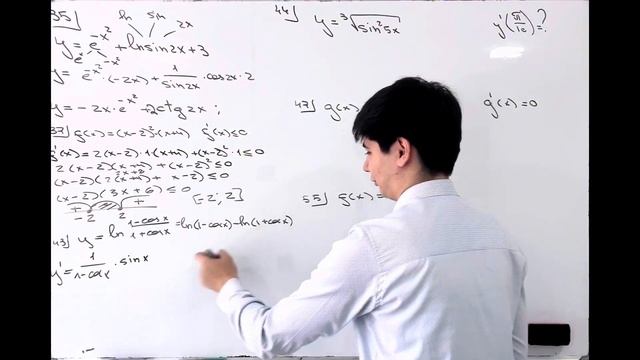 35)
ln sin 2x
y = e^{-x^2} + ln sin 2x + 3
e^x e^{-x^2}
y' = e^{-x^2} · (-2x) + 1/sin2x · cos2x · 2
y' = -2x · e^{-x^2} + 2ctg2x ;
g'(x) ≤ 0
g'(x) = 2(x-2) · 1 (x+4) + (x-2)^2 · 1 ≤ 0
2(x-2)(x+4) + (x-2)^2 ≤ 0
(x-2)(3x+6) ≤ 0
+ - +
-2 2
[-2; 2]
43) y = ln (1-cosx)/(1+cosx) = ln(1-cosx) - ln(1+cosx)
y' = 1/(1-cosx) · sinx
44) y = ∛(sin²5x)
47) g(x)
g'(x) = 0
55) g(x) =